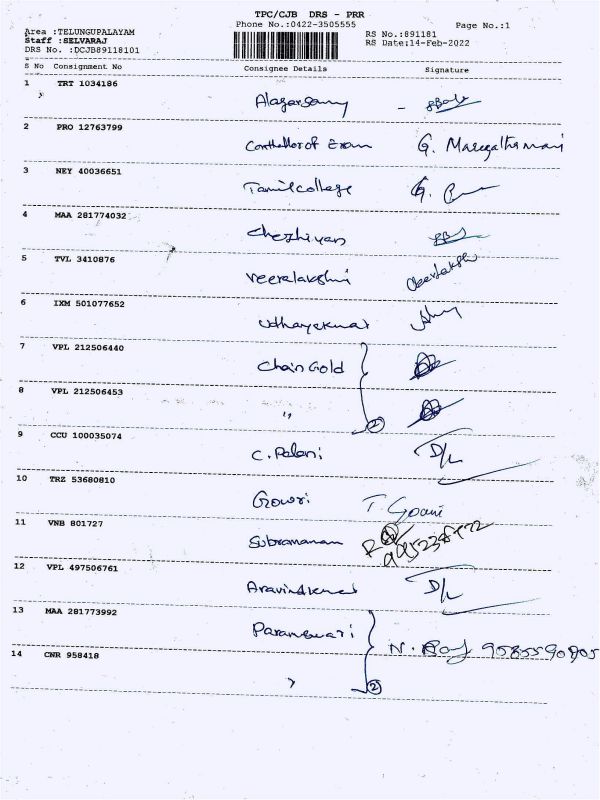 TPC/CJB DRS - PRR
Phone No.:0422-3505555 Page No.:1
Area :TELUNGUPALAYAM
Staff :SELVARAJ RS No.:891181
DRS No. :DCJB89118101 RS Date:14-Feb-2022
S No Consignment No Consignee Details Signature
1 TRT 1034186
Alagarsamy -
2 PRO 12763799
Controller of Exam G. Maragathamani
3 NEY 40036651
Tamil college G.
4 MAA 281774032
Chezhiyan
5 TVL 3410876
Veeralakshmi
6 IXM 501077652
Udhayakumar
7 VPL 212506440
Chain Gold
8 VPL 212506453
" 2
9 CCU 100035074
C. Palani D/L
10 TRZ 53680810
Gowri T. Gowri
11 VNB 801727
Subramanam
12 VPL 497506761
Aravindkumar D/L
13 MAA 281773992
Parameswari
N. Roy
14 CNR 958418
" 2